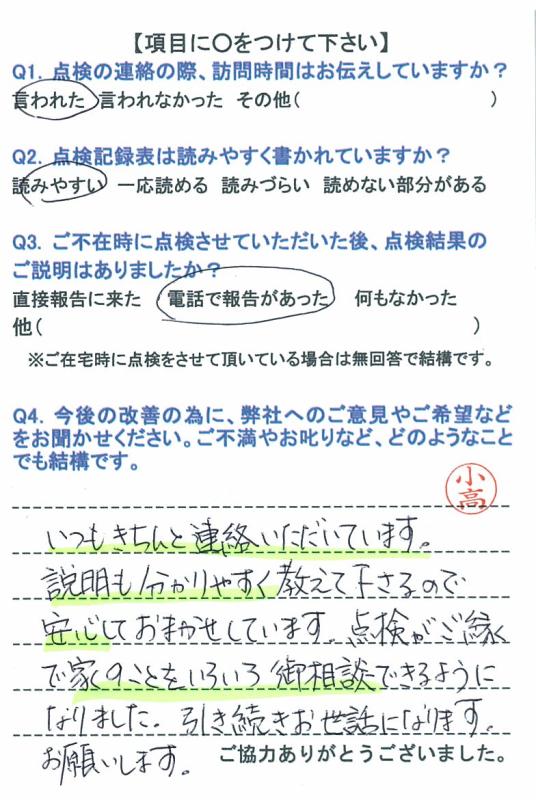 【項目に〇をつけて下さい】
Q1. 点検の連絡の際、訪問時間はお伝えしていますか？
言われた 言われなかった その他(　　　　　　　　　)
Q2. 点検記録表は読みやすく書かれていますか？
読みやすい 一応読める 読みづらい 読めない部分がある
Q3. ご不在時に点検させていただいた後、点検結果の
ご説明はありましたか？
直接報告に来た 電話で報告があった 何もなかった
他(　　　　　　　　　　　　　　　　　　　　)
※ご在宅時に点検をさせて頂いている場合は無回答で結構です。
Q4. 今後の改善の為に、弊社へのご意見やご希望など
をお聞かせください。ご不満やお叱りなど、どのようなこと
でも結構です。
小高
いつもきちんと連絡いただいています。
説明も分かりやすく教えて下さるので
安心しておまかせしています。点検がご縁
で家のことをいろいろ御相談できるように
なりました。引き続きお世話になります。
お願いします。
ご協力ありがとうございました。